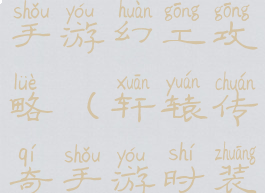 shǒu yóu huàn gōng gōng
手游幻工攻
lüè xuān yuán chuán
略（轩辕传
qí shǒu yóu shí zhuāng
奇手游时装